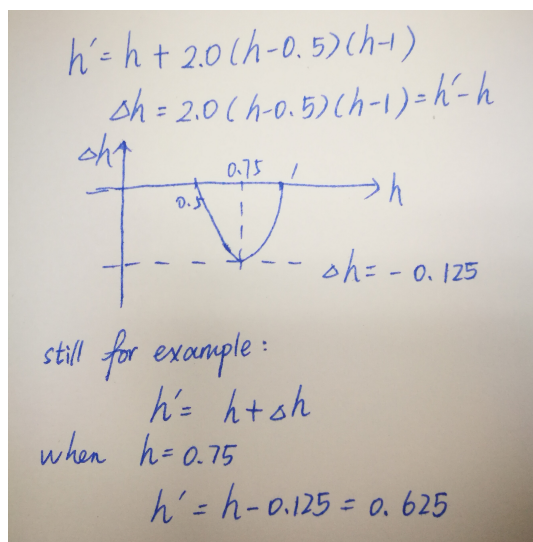 h′= h + 2.0(h-0.5)(h-1)
△h = 2.0(h-0.5)(h-1)=h′-h
△h
0.75
1
h
0.5
△h= - 0.125
still for example:
h′= h+△h
when h=0.75
h′= h-0.125 = 0.625